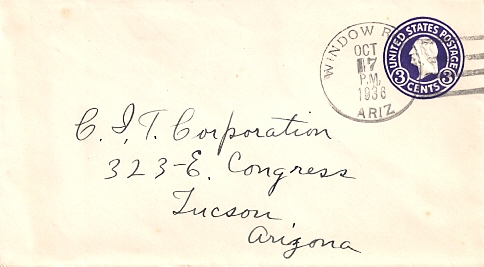 WINDOW R
OCT
17
P.M.
1936
ARIZ
UNITED STATES POSTAGE
3 CENTS 3
C. I. T. Corporation
323-E. Congress
Tucson
Arizona